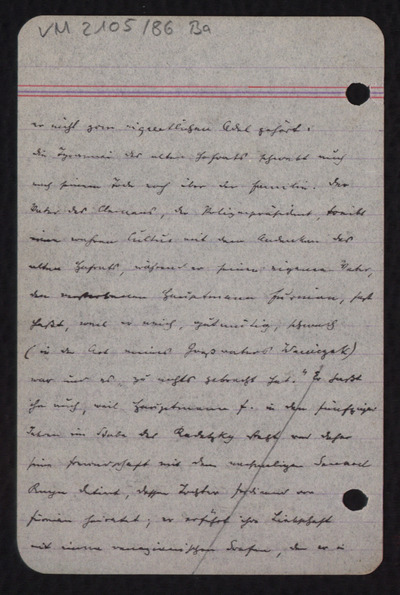 VM 2105/86 Ba
er nicht zum eigentlichen Adel gehört.
die Tyrannei des alten Hofrats schwebt auch
nach seinem Tode noch über der Familie. Der
Vater des Clemens, der Polizeipräsident, treibt
einen wahren Cultus mit dem Andenken des
alten Hofrats, während er seinen eigenen Vater,
den verstorbenen Hauptmann, fast
haßt, weil er weich, gutmütig, schwach
(in der Art meines Großvaters)
war und es zu nichts gebracht hat. Er haßt
ihn auch, weil Hauptmann F. in den fünfziger
Jahren im Stabe des Radetzky steht und daher
seine Freundschaft mit dem nachmaligen General
datiert, dessen Tochter Ferdinand von
heiratet; er erfährt ihre Liebschaft
mit einem venezianischen Grafen, den er in